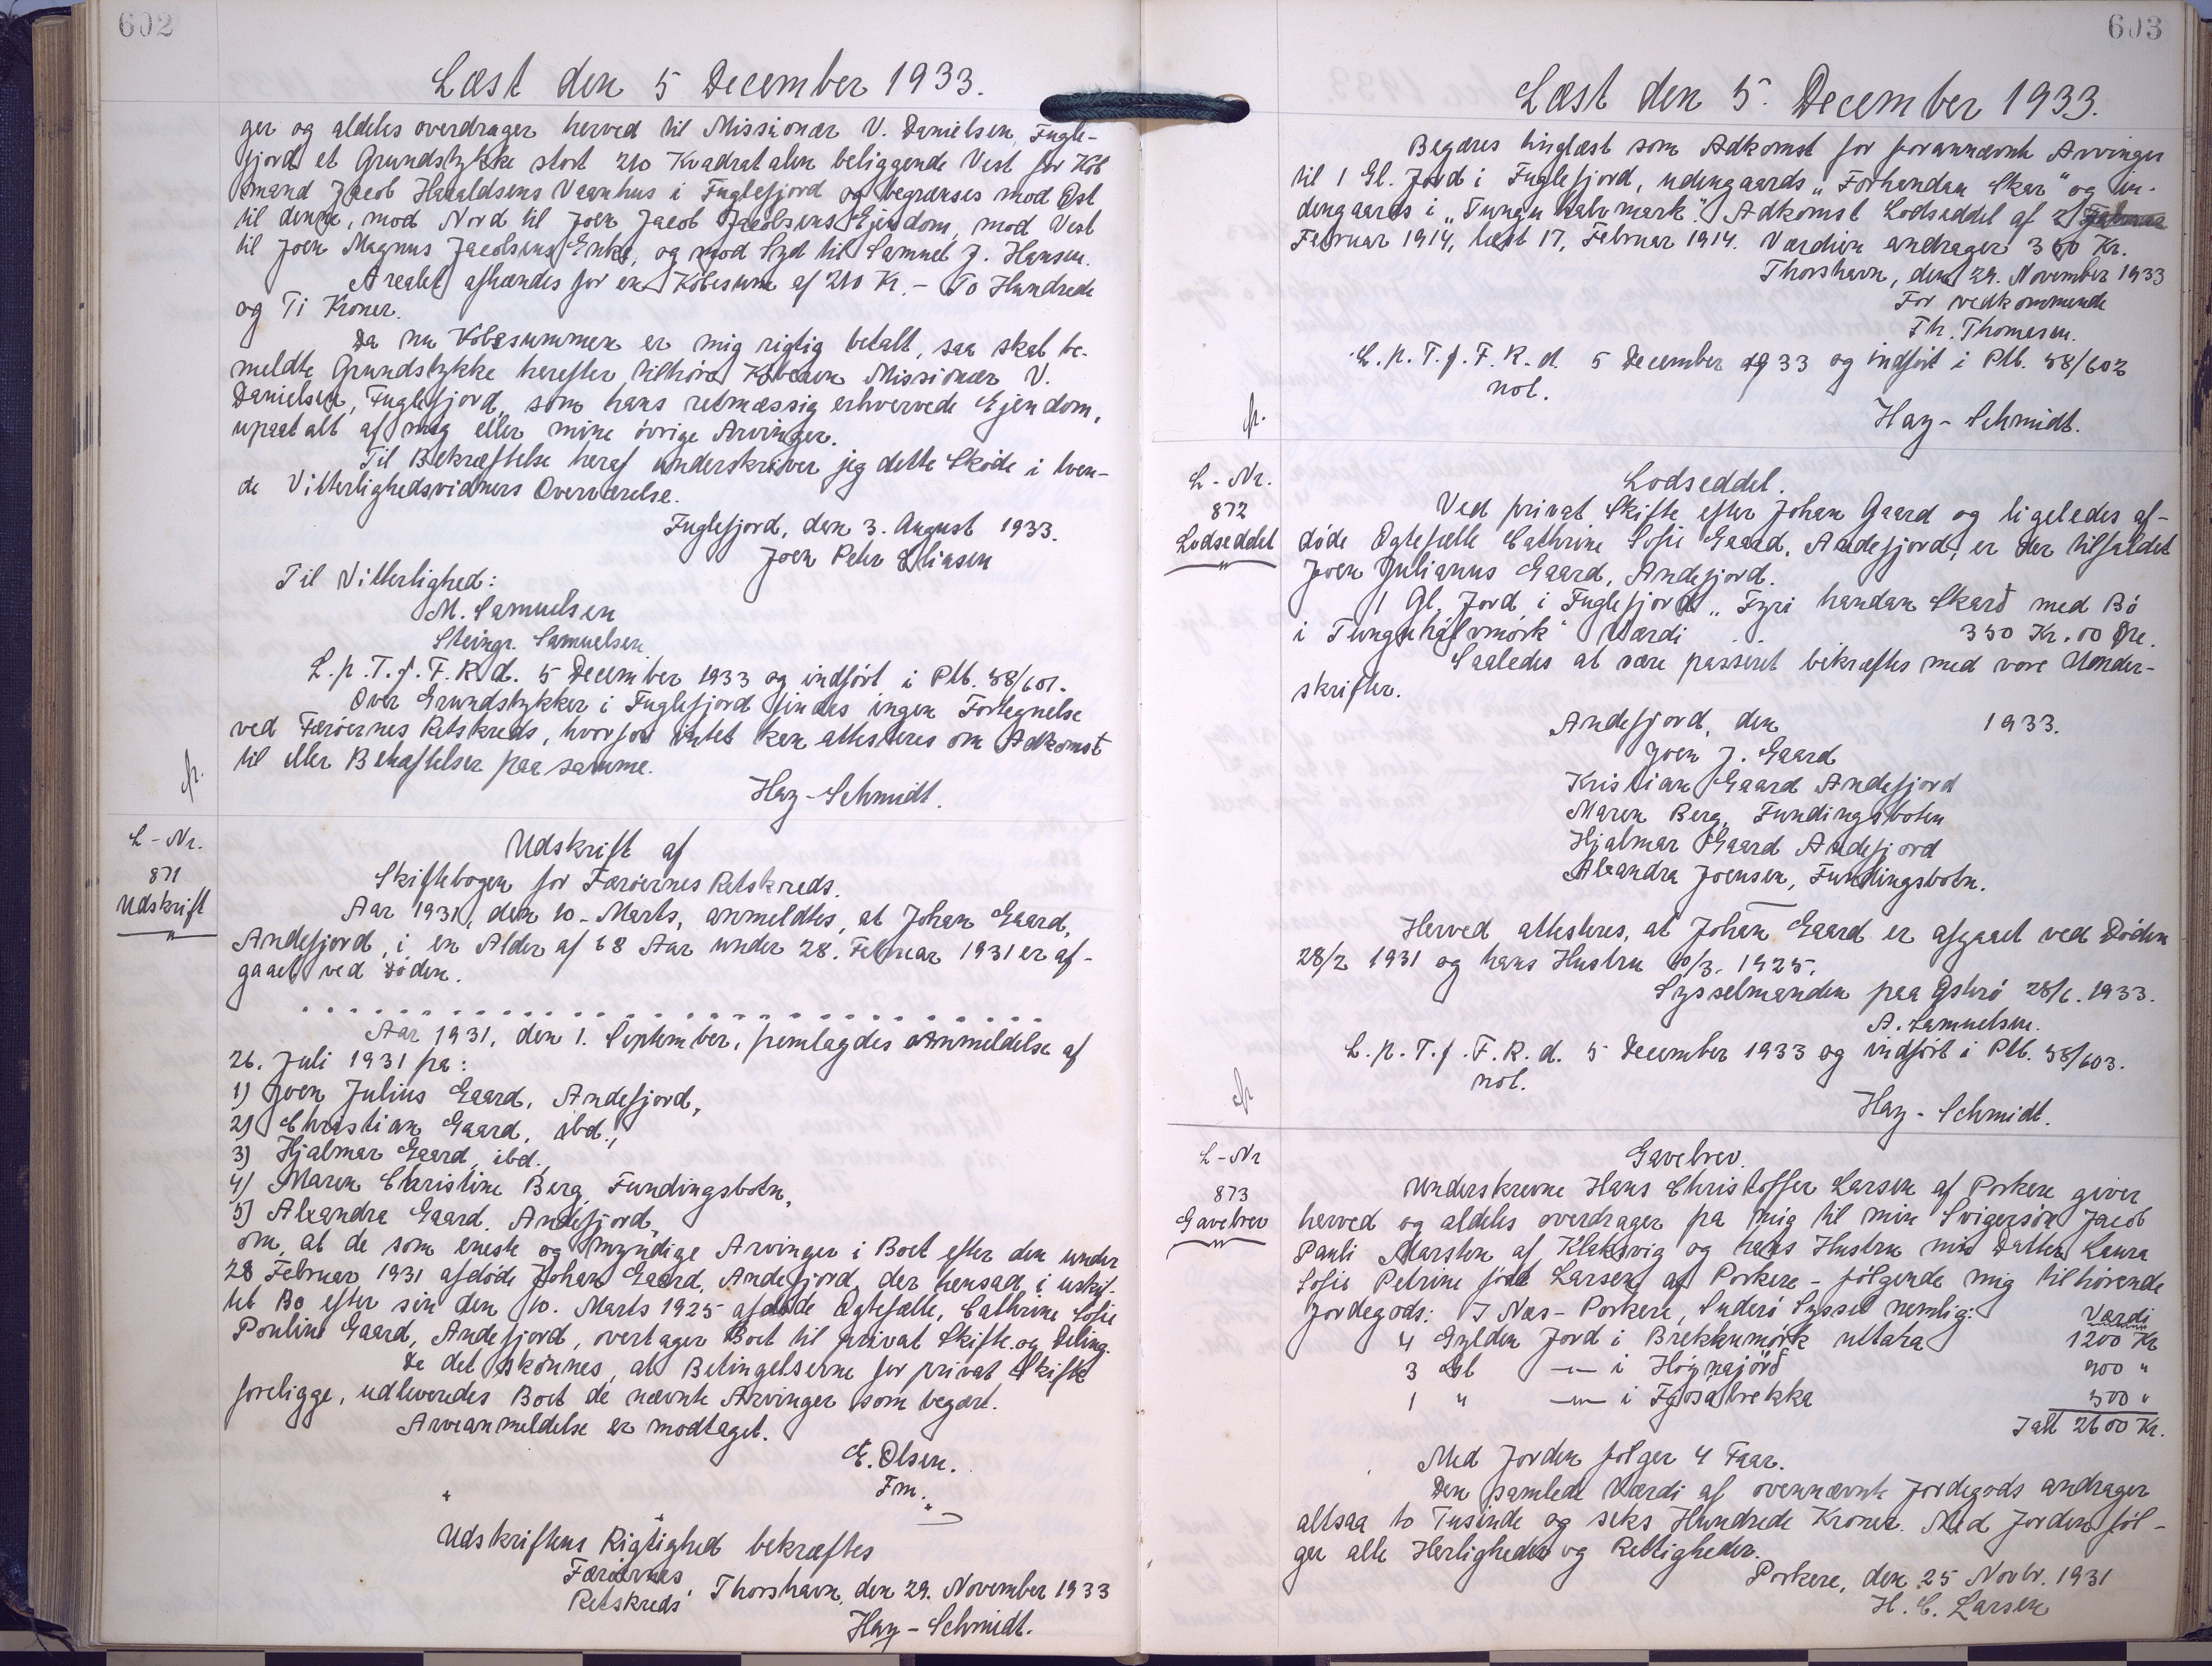 602
Læst den 5 December 1933.
ger og aldeles overdrager herved til Missionær V. Danielsen, Fugle-
fjord et Grundstykke stort 210 Kvadratalen beliggende Vest for Køb
mand Jacob Haraldsens Vaanhus i Fuglefjord og begrænses mod Øst
til denne, mod Nord til Joen Jacob Jacobsens Ejendom, mod Vest
til Joen Magnus Jacobsens Enke, og mod Syd til Samuel J. Hansen.
Arealet afhændes for en Købesum af 210 Kr. - To Hundrede
og Ti Kroner.
Da nu Købesummen er mig rigtig betalt, saa skal be-
meldte Grundstykke herefter tilhøre Køberen Missionær V.
Danielsen, Fuglefjord, som hans retmæssig erhvervede Ejendom,
upaatalt af mig eller mine øvrige Arvinger.
Til Bekræftelse heraf underskriver jeg dette Skøde i tven-
de Vitterlighedsvidners Overværelse.
Fuglefjord, den 3. August 1933.
Joen Peter Eliasen
Til Vitterlighed:
M. Samuelsen
Steingr. Samuelsen
L.p.T.f.F.R.d. 5 December 1933 og indført i Ptb. 38/601.
Over Grundstykker i Fuglefjord findes ingen Fortegnelse
ved Færøernes Retskreds, hvorfor intet kan attesteres om Adkomst
til eller Behæftelser paa samme.
Hay-Schmidt.
L-Nr.
871
Udskrift
Udskrift af
Skiftebogen for Færøernes Retskreds.
Aar 1931, den 10. Marts, anmeldtes, at Johan Gaard,
Andefjord, i en Alder af 68 Aar under 28. Februar 1931 er af-
gaaet ved Døden.
Aar 1931, den 1. September, fremlagdes Anmeldelse af
26. Juli 1931 fra:
1) Joen Julius Gaard, Andefjord,
2) Christian Gaard, ibd.,
3) Hjalmar Gaard, ibd.,
4) Maren Christine Berg, Fundingsbotn,
5) Alexandra Gaard, Andefjord,
om, at de som eneste og myndige Arvinger i Boet efter den under
28 Februar 1931 afdøde Johan Gaard, Andefjord, der hensad i uskif-
tet Bo efter sin den 10. Marts 1925 afdøde Ægtefælle, Cathrine Sofie
Pouline Gaard, Andefjord, overtager Boet til privat Skifte og Deling.
Da det skønnes, at Betingelserne for privat Skifte
foreligge, udleveredes Boet de nævnte Arvinger som begært.
Arveanmeldelse er modtaget.
E. Olsen.
Fm.
Udskriftens Rigtighed bekræftes
Færøernes
Retskreds, Thorshavn, den 29. November 1933
Hay-Schmidt.
603
Læst den 5. December 1933.
Begæres tinglæst som Adkomst for forannævnte Arvinger
til 1 Gl. Jord i Fuglefjord, udengaards „Forhandan Skar" og in-
dengaards i „Tungu halvmark". Adkomst Lodseddel af 2
Februar 1914, læst 17. Februar 1914. Værdien andrager 350 Kr.
Thorshavn, den 29. November 1933
For vedkommende
Th. Thomsen.
L.p.T.f.F.R.d. 5 December 1933 og indført i Ptb. 38/602
not.
Hay-Schmidt.
L-Nr.
872
Lodseddel
Lodseddel.
Ved privat Skifte efter Johan Gaard og ligeledes af-
døde Ægtefælle Cathrine Sofie Gaard, Andefjord, er der tilfaldet
Joen Julianus Gaard, Andefjord.
1 Gl. Jord i Fuglefjord „Fyri handan Skarð med Bø
i Tunguhálvmørk" Værdi . . 350 Kr. 00 Øre.
Saaledes at være passeret bekræftes med vore Under-
skrifter.
Andefjord, den 1933.
Joen J. Gaard
Kristian Gaard Andefjord
Maren Berg, Fundingsbotn
Hjalmar Gaard Andefjord
Alexandra Joensen, Fundingsbotn.
Herved attesteres, at Johan Gaard er afgaaet ved Døden
28/2 1931 og hans Hustru 10/3. 1925.
Sysselmanden paa Østerø 28/6. 1933.
A. Samuelsen.
L.p.T.f.F.R.d. 5 December 1933 og indført i Ptb. 38/603.
not.
Hay-Schmidt.
L-Nr
873
Gavebrev
Gavebrev.
Underskrevne Hans Christoffer Larsen af Porkere giver
herved og aldeles overdrager fra mig til min Svigersøn Jacob
Pauli Marsten af Klaksvig og hans Hustru min Datter Laura
Sofie Petrine født Larsen af Porkere - følgende mig tilhørende
Jordegods: I Næs-Porkere, Suderø Syssel nemlig: Værdi
4 Gylden Jord i Brekkumørk uttara 1200 Kr
3 Gl —"— i Høgnajørð 900 "
1 " —"— i Fjosabrekka 500 "
Ialt 2600 Kr.
Med Jorden følger 4 Faar.
Den samlede Værdi af ovennævnte Jordegods andrager
altsaa to Tusinde og seks Hundrede Kroner. Med Jorden føl-
ger alle Herligheder og Rettigheder.
Porkere, den 25 Novbr. 1931
H. C. Larsen